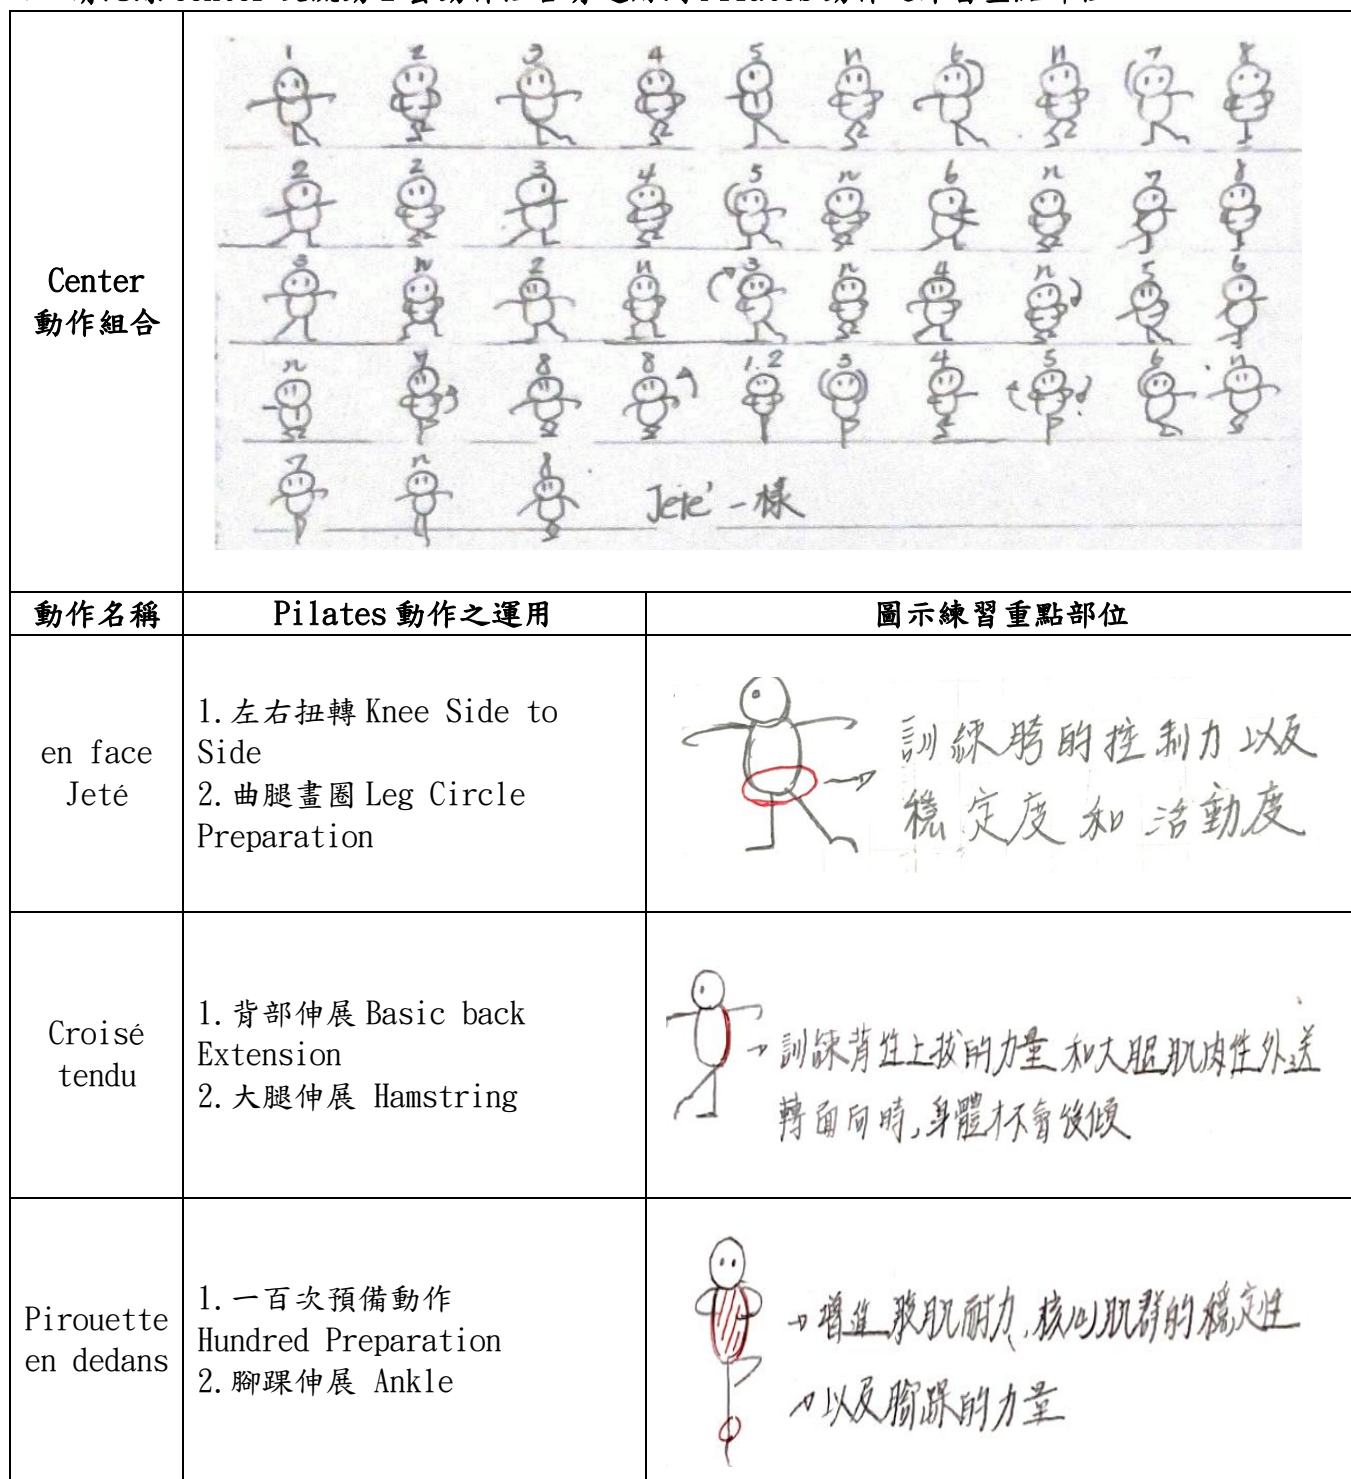 1 2 3 4 5 n 6 n 7 8
2 2 3 4 5 n 6 n 7 8
3 n 2 n 3 n 4 n 5 6
n 7 8 8 1.2 3 4 5 6 n
7 n 8 Jeté 一樣
Center
動作組合
動作名稱
Pilates 動作之運用
圖示練習重點部位
en face
Jeté
1.左右扭轉 Knee Side to
Side
2.曲腿畫圈 Leg Circle
Preparation
訓練胯的控制力以及
穩定度和活動度
Croisé
tendu
1.背部伸展 Basic back
Extension
2.大腿伸展 Hamstring
訓練背性上拔的力量和大腿肌肉性外送
轉面向時,身體才不會後傾
Pirouette
en dedans
1.一百次預備動作
Hundred Preparation
2.腳踝伸展 Ankle
增進腹肌耐力、核心肌群的穩定性
以及腳踝的力量